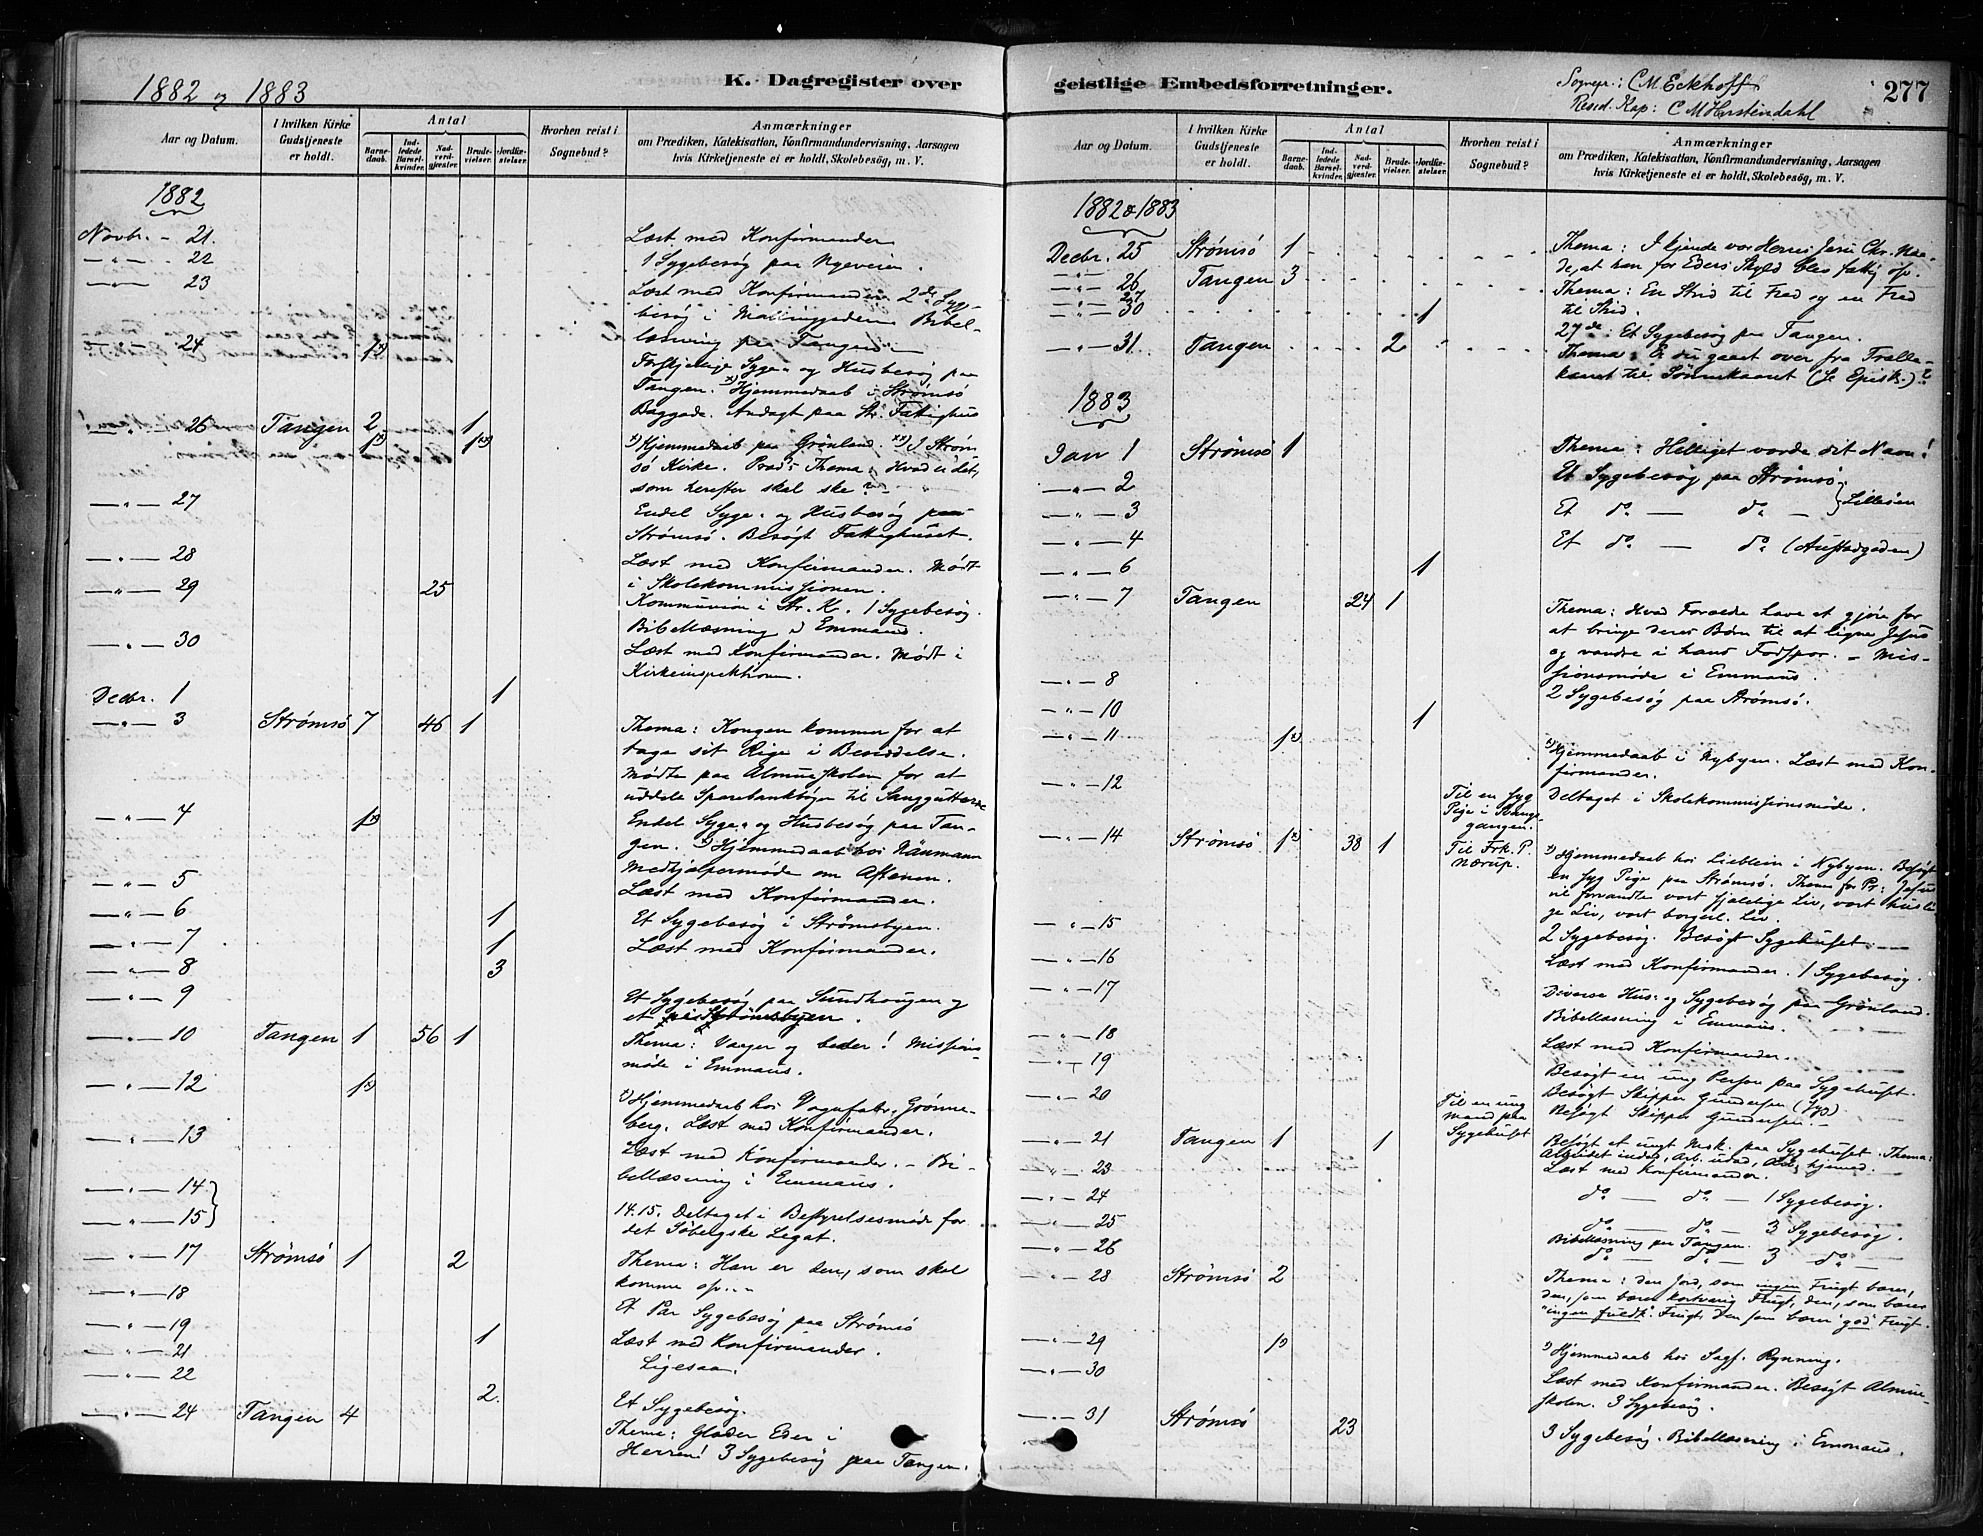 1882 og 1883
K. Dagregister over
Aar og Datum.
I hvilken Kirke Gudstjeneste er holdt.
Antal
Barne-daab.
Ind-ledede Barsel-kvinder.
Nad-verd-gjæster.
Brude-vielser.
Jordfæ-stelser.
Hvorhen reist i Sognebud?
Anmærkninger
om Prædiken, Katekisation, Konfirmandundervisning, Aarsagen
hvis Kirketjeneste ei er holdt, Skolebesøg, m. V.
1882
Novbr. - 21. Læst med Konfirmander
22 1 Sygebesøg paa Nyeveien.
23 Læst med Konfirmander. 2de Syge-
besøg i Bibel-
læsning paa Tangen.
24 1x) Forskjellige Syge- og Husbesøg paa
Tangen. x) Hjemmedaab i Strømsø
Baggade. Andagt paa Str. Fattighus
26 Tangen 2 1
1x) 1xx) x) Hjemmedaab paa Grønland xx) I Strøm-
sø Kirke. Præd: Thema: Hvad er det,
som herefter skal ske?
27 Endel Syge- og Husbesøg paa
Strømsø. Besøgt Fattighuset.
28 Læst med Konfirmander. Mødt
i Skolekommissionen.
29 25 Kommunion i Str. K. 1 Sygebesøg.
Bibellæsning i Emmaus.
30 Læst med Konfirmander. Mødt i
Kirkeinspektionen.
Decbr. 1 1
3 Strømsø 7 46 1 Thema: Kongen kommer for at
tage sit Rige i Besiddelse.
Mødte paa Almueskolen for at
uddele Sparebankbøger til Sanggutterne
4 1x) Endel Syge- og Husbesøg paa Tan-
gen. x) Hjemmedaab hos Näumann
Medhjælpermøde om Aftenen.
5 Læst med Konfirmander.
6 1 Et Sygebesøg i Strømsbyen.
7 1 Læst med Konfirmander.
8 3
9 Et Sygebesøg paa Sundhaugen og
et paa Strømsbyen.
10 Tangen 1 56 1 Thema: Vaager og beder! Missions-
møde i Emmaus.
12 1x) x) Hjemmedaab hos Vognfabr. Grønne-
berg. Læst med Konfirmander.
13 Læst med Konfirmander. - Bi-
bellæsning i Emmaus.
14
15 14. 15. Deltaget i Bestyrelsesmøde for
det Søbergske Legat.
17 Strømsø 1 2 Thema: Han er den, som skal
komme op...
18 Et Par Sygebesøg paa Strømsø
19 1 Læst med Konfirmander.
21 Ligesaa.
22 2. Et Sygebesøg.
24 Tangen 4 Thema: Glæder Eder i
Herren! 3 Sygebesøg paa Tangen.
geistlige Embedsforretninger.
Sognepr: C M Eckhoff
Resid. Kap: C M Herstendahl
277
Aar og Datum.
I hvilken Kirke Gudstjeneste er holdt.
Antal
Barne-daab.
Ind-ledede Barsel-kvinder.
Nad-verd-gjæster.
Brude-vielser.
Jordfæ-stelser.
Hvorhen reist i Sognebud?
Anmærkninger
om Prædiken, Katekisation, Konfirmandundervisning, Aarsagen
hvis Kirketjeneste ei er holdt, Skolebesøg, m. V.
1882 & 1883
Decbr. 25 Strømsø 1 Thema: I kjende vor Herres Jesu Chr. Naa-
de, at han for Eders Skyld blev fattig osv.
26 Tangen 3 Thema: En Strid til Fred og en Fred
til Strid.
27
30 1 27de: Et Sygebesøg paa Tangen.
31 Tangen 2 Thema: Er du gaaet over fra Trælle-
kaaret til Sønnekaaret (se Epist.)?
1883
Jan 1 Strømsø 1 Thema: Helliget vorde dit Navn!
2 Et Sygebesøg paa Strømsø
3 Et do - do - Lilleøen
4 Et do - do
6 1
7 Tangen 24 1 Thema: Hvad Foræle have at gjøre for
at bringe deres Børn til at ligne Jesus
og vandre i hans Fodspor. - Mis-
sionsmøde i Emmaus.
8 2 Sygebesøg paa Strømsø.
10 1
11 1x) x) Hjemmedaab i Nybyen. Læst med Kon-
firmander.
12 Deltaget i Skolekommissionsmøde.
Til en syg Pige i
14 Strømsø 1x) 38 1 Til Frk. P. Nærup. x) Hjemmedaab hos Lieblein i Nybyen. Besøgt
en syg Pige paa Strømsø. Thema for Pr: Jesus
vil forvandle vort sjælelige Liv, vort husli-
ge Liv, vort borgerl. Liv.
15 2 Sygebesøg. Besøgt Sygehuset.
16 Læst med Konfirmander. 1 Sygebesøg.
17 Diverse Hus- og Sygebesøg paa Grønland.
Bibellæsning i Emmaus.
18 Læst med Konfirmander.
19 Besøgt en ung Person paa Sygehuset.
20 Besøgt Skipper Gundersen (syg)
Til en ung Mand paa Sygehuset Besøgt Skipper Gundersen.
21 Tangen 1 1 Besøgt et ungt Msk. paa Sygehuset. Thema:
Arbeidet indad, Arb. udad, Arb. hjemad.
23 Læst med Konfirmander.
24 do - do - 1 Sygebesøg.
25 do - do - 3 Sygebesøg.
Bibellæsning paa Tangen.
26 do - do - 3 do -
28 Strømsø 2 Thema: den Jord, som ingen Frugt bærer,
den, som bærer kortvarig Frugt, den, som bærer
"ingen fuldk." Frugt, den som bærer god Frugt.
29 1x) x) Hjemmedaab hos Sagf. Rynning.
30 Læst med Konfirmander. Besøgt Almue-
skolen. 3 Sygebesøg.
31 Strømsø 23 3 Sygebesøg. Bibellæsning i Emmaus.